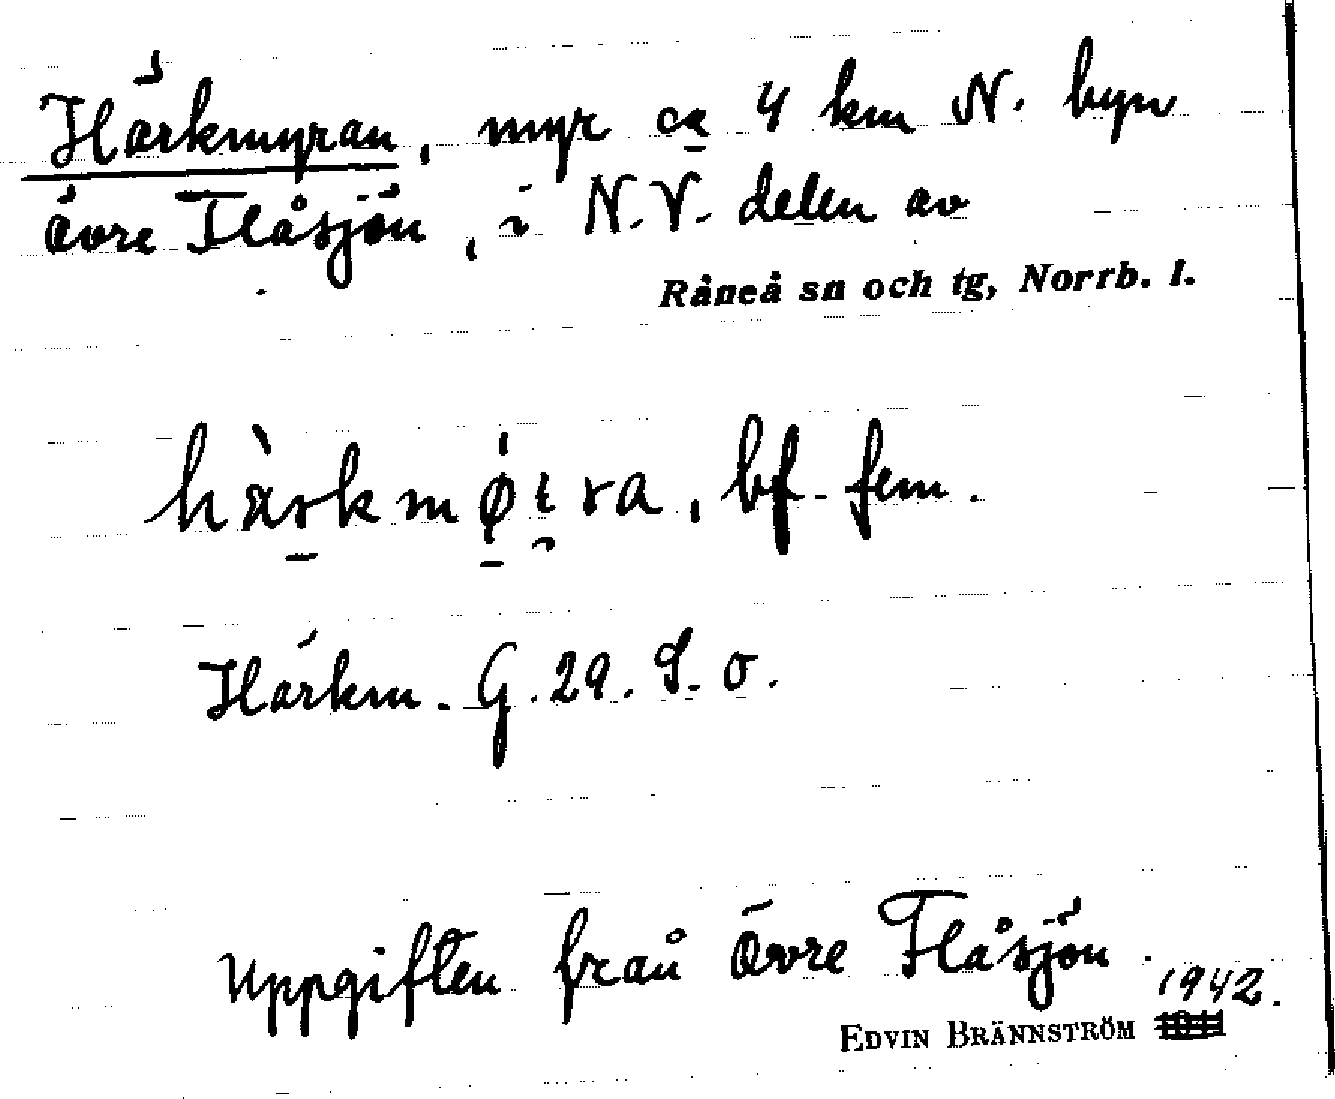 Härkmyran, myr ca 4 km N. byn
övre Flåsjön, i N.V. delen av
Råneå sn och tg, Norrb. l.
hàrkmǿi̯ra, bf. fem.
Härkm. G. 29. S. o.
Uppgiften från övre Flåsjön.
1942.
EDVIN BRÄNNSTRÖM